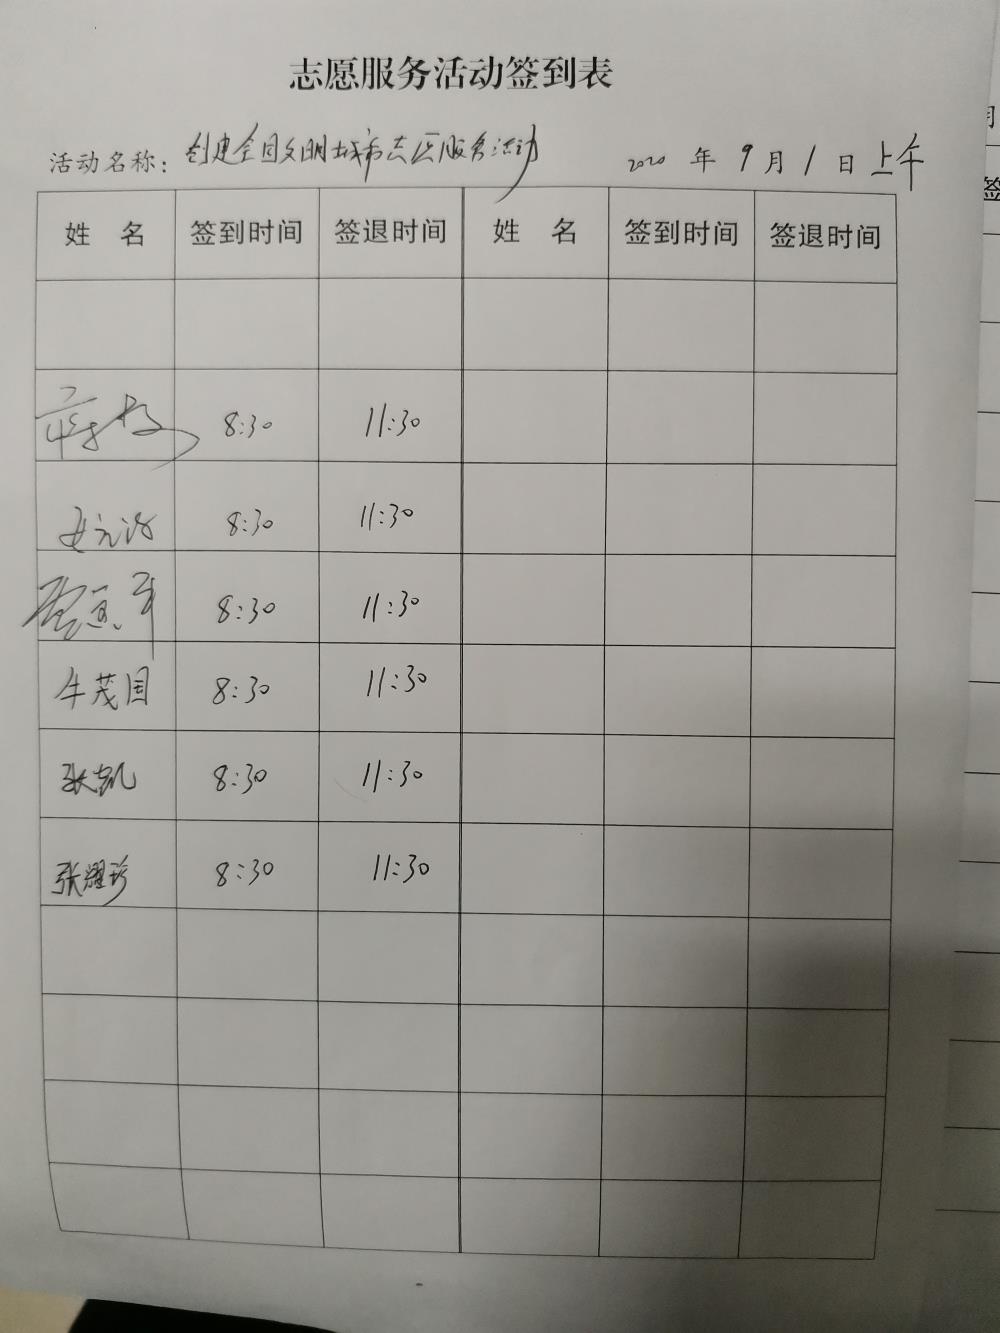 志愿服务活动签到表
活动名称：创建全国文明城市志愿服务活动 2020 年 9 月 1 日 上午
姓 名 签到时间 签退时间 姓 名 签到时间 签退时间
8:30 11:30
8:30 11:30
8:30 11:30
牛茂国 8:30 11:30
张凯 8:30 11:30
张耀珍 8:30 11:30
签